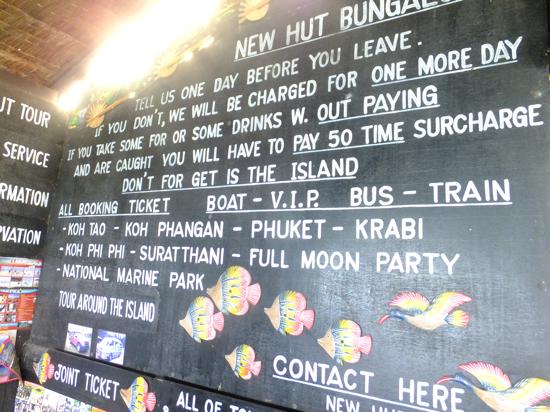 NEW HUT
TELL US ONE DAY BEFORE YOU LEAVE.
IF YOU DON'T, WE WILL BE CHARGED FOR ONE MORE DAY
IF YOU TAKE SOME FOR OR SOME DRINKS W. OUT PAYING
AND ARE CAUGHT YOU WILL HAVE TO PAY 50 TIME SURCHARGE
DON'T FOR GET IS THE ISLAND
ALL BOOKING TICKET BOAT - V.I.P. BUS - TRAIN
- KOH TAO - KOH PHANGAN - PHUKET - KRABI
- KOH PHI PHI - SURATTHANI - FULL MOON PARTY
- NATIONAL MARINE PARK
TOUR AROUND THE ISLAND
CONTACT HERE
JOINT TICKET
ALL OF
NEW
TOUR
SERVICE